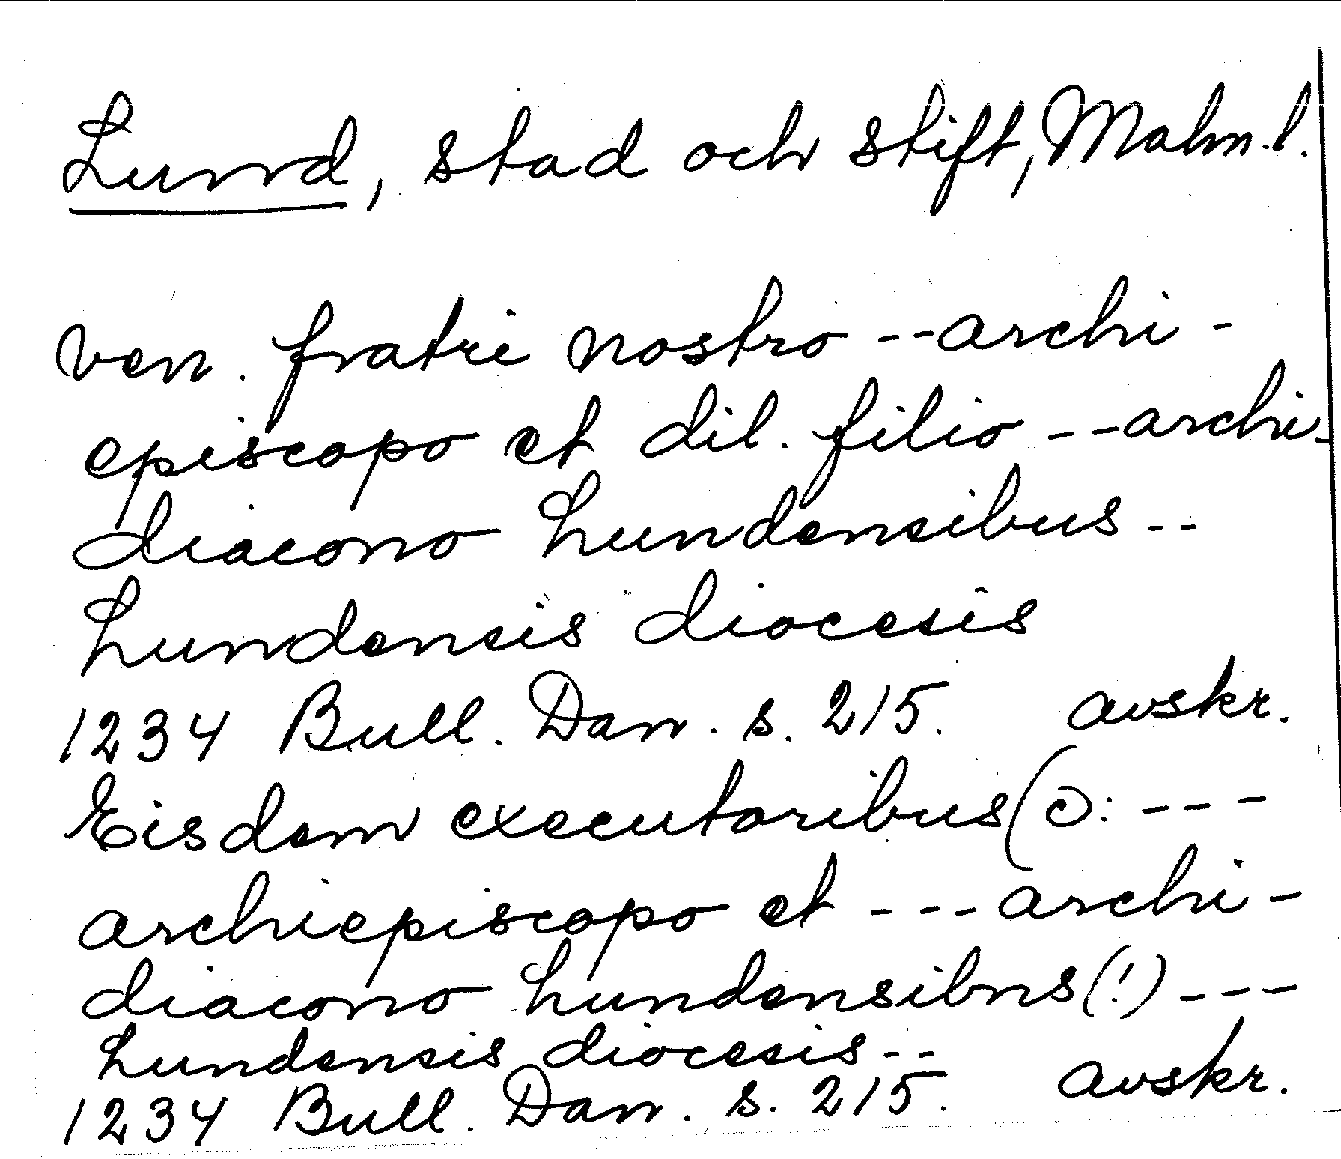 Lund, stad och stift, Malm.l.
ven. fratri nostro --archi-
episcopo et dil. filio --archi-
diacono Lundensibus--
Lundensis diocesis
1234 Bull. Dan. s. 215. avskr.
Eisdem executoribus (ɔ: ---
archiepiscopo et ---archi-
diacono Lundensibns(!) ---
Lundensis diocesis--
1234 Bull. Dan. s. 215. avskr.